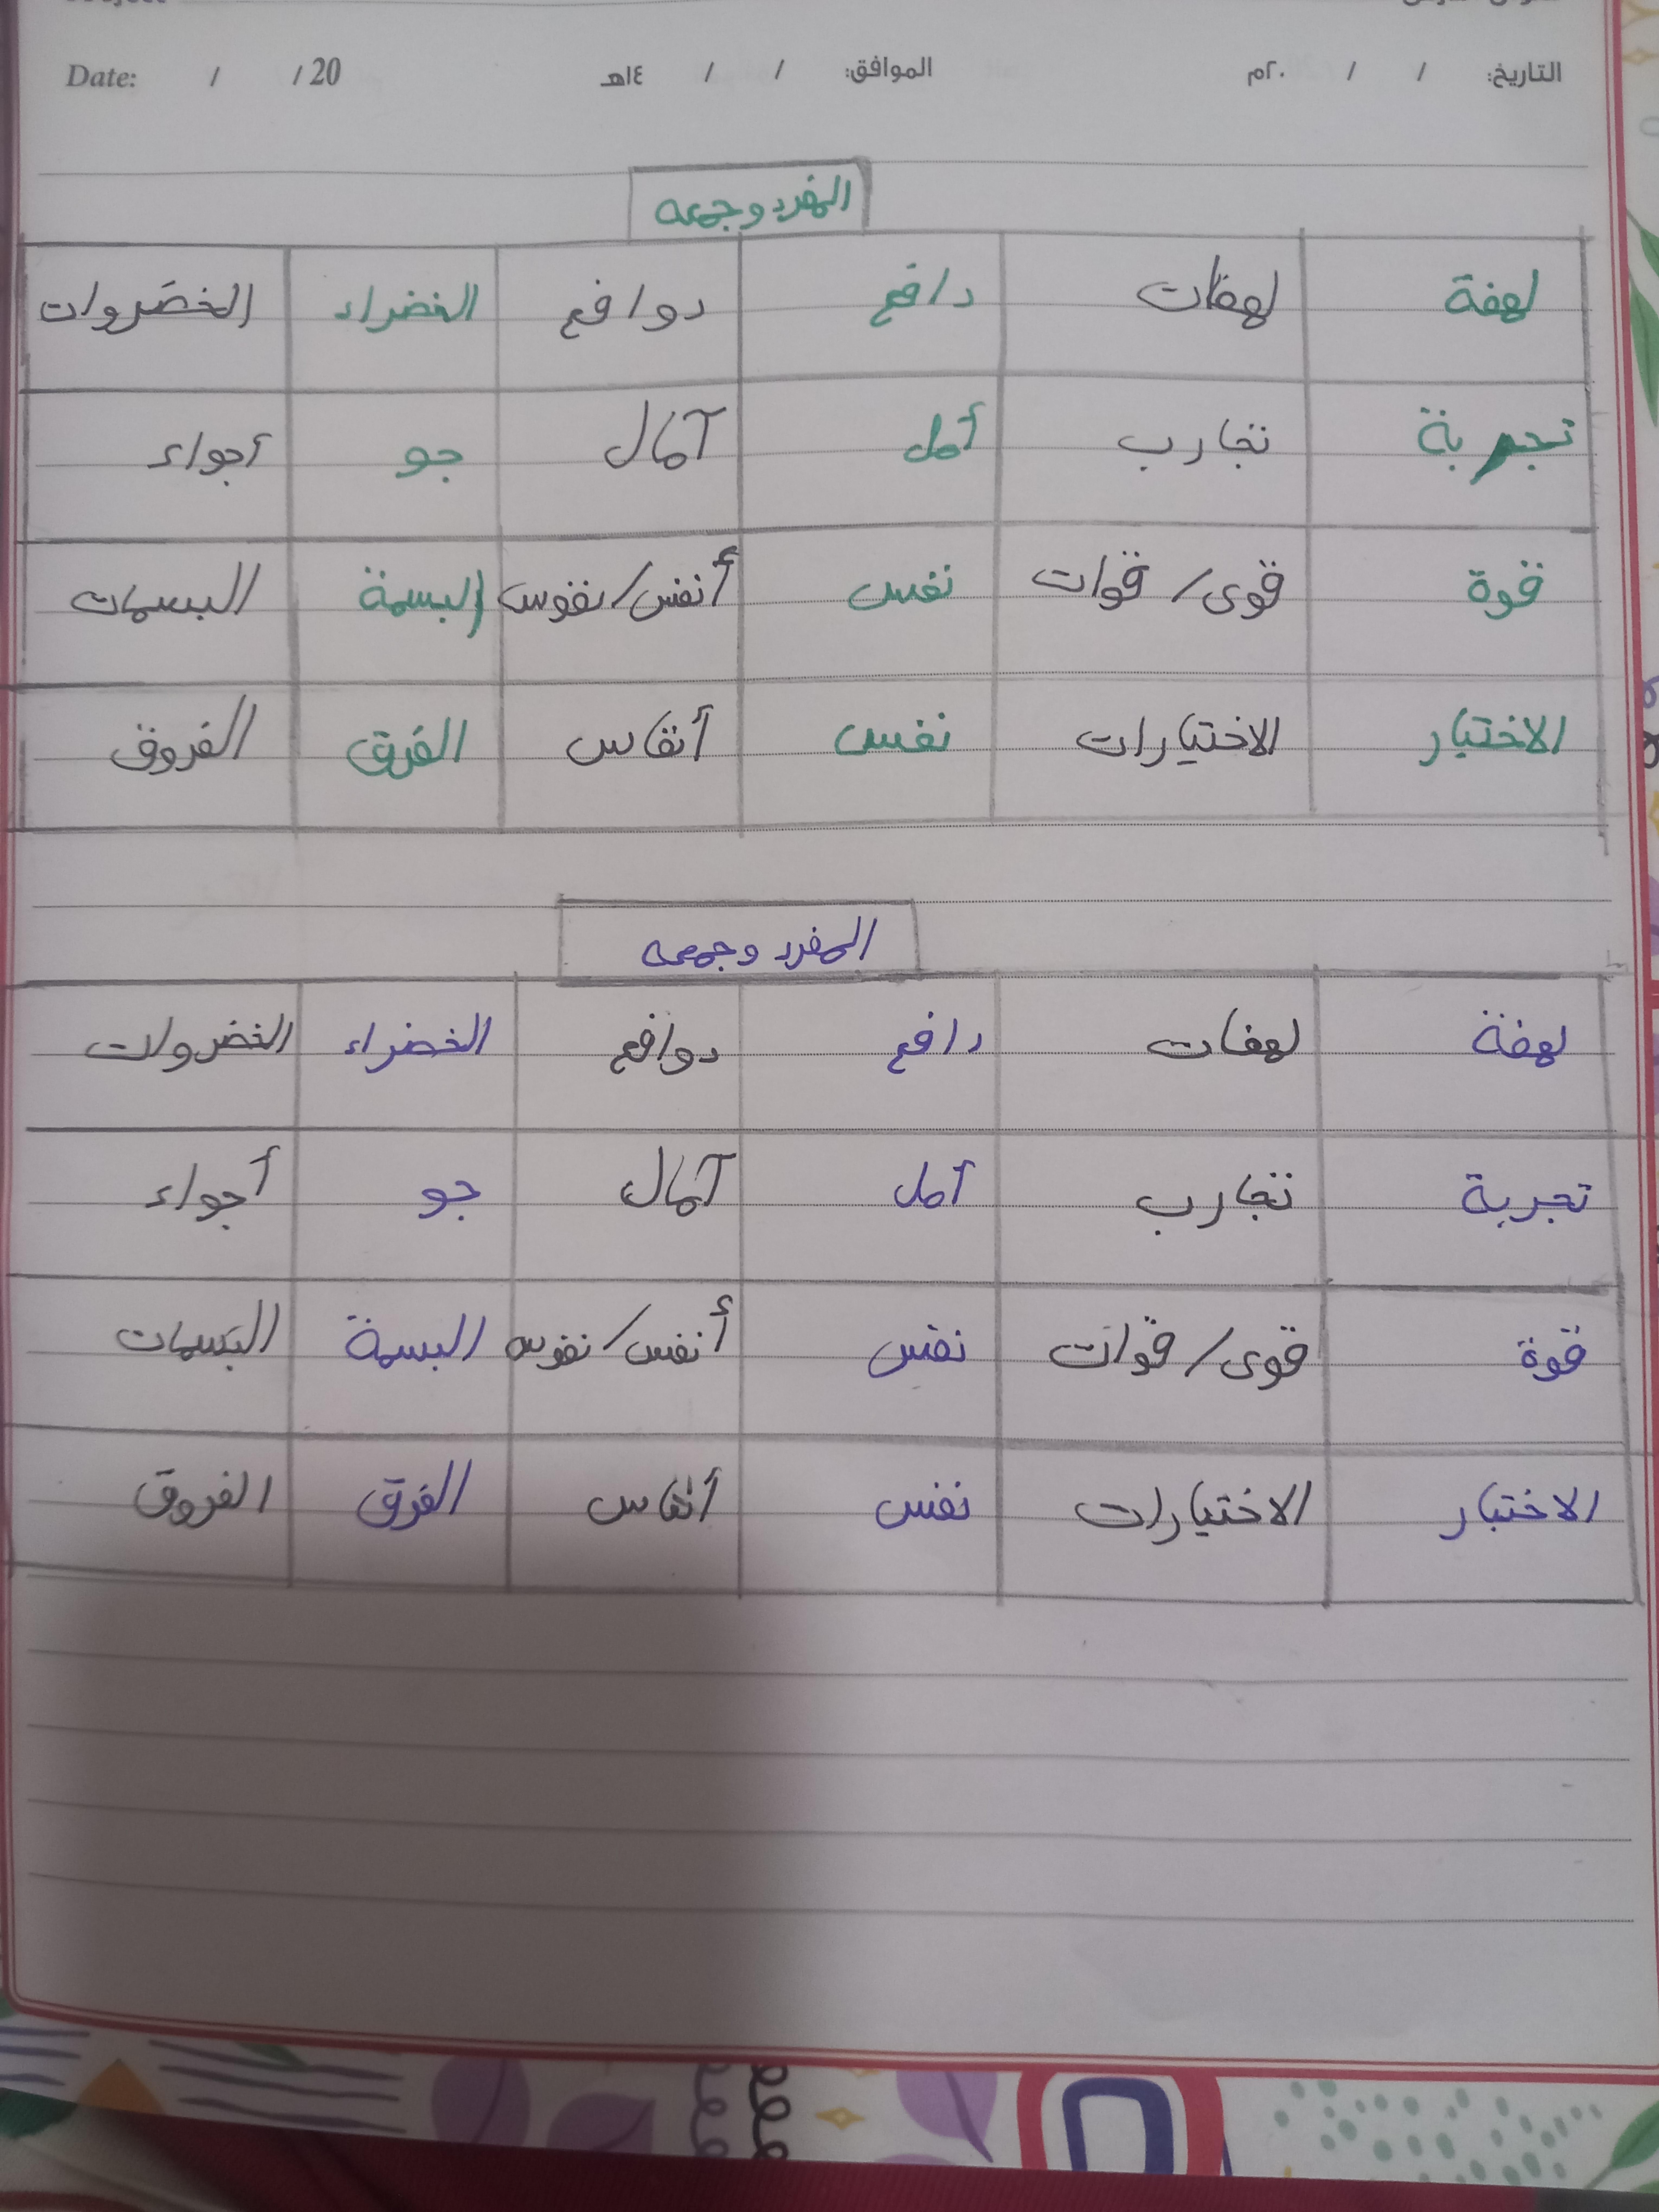 التاريخ: / / ٢٠م الموافق: / / ١٤هـ Date: / / 20
المفرد وجمعه
لهفة لهفات دافع دوافع الخضراء الخضروات
تجربة تجارب أمل آمال جو أجواء
قوة قوى/قوات نفس أنفس/نفوس البسمة البسمات
الاختبار الاختبارات نفس أنفاس الفرق الفروق
المفرد وجمعه
لهفة لهفات دافع دوافع الخضراء الخضروات
تجربة تجارب أمل آمال جو أجواء
قوة قوى/قوات نفس أنفس/نفوس البسمة البسمات
الاختبار الاختبارات نفس أنفاس الفرق الفروق